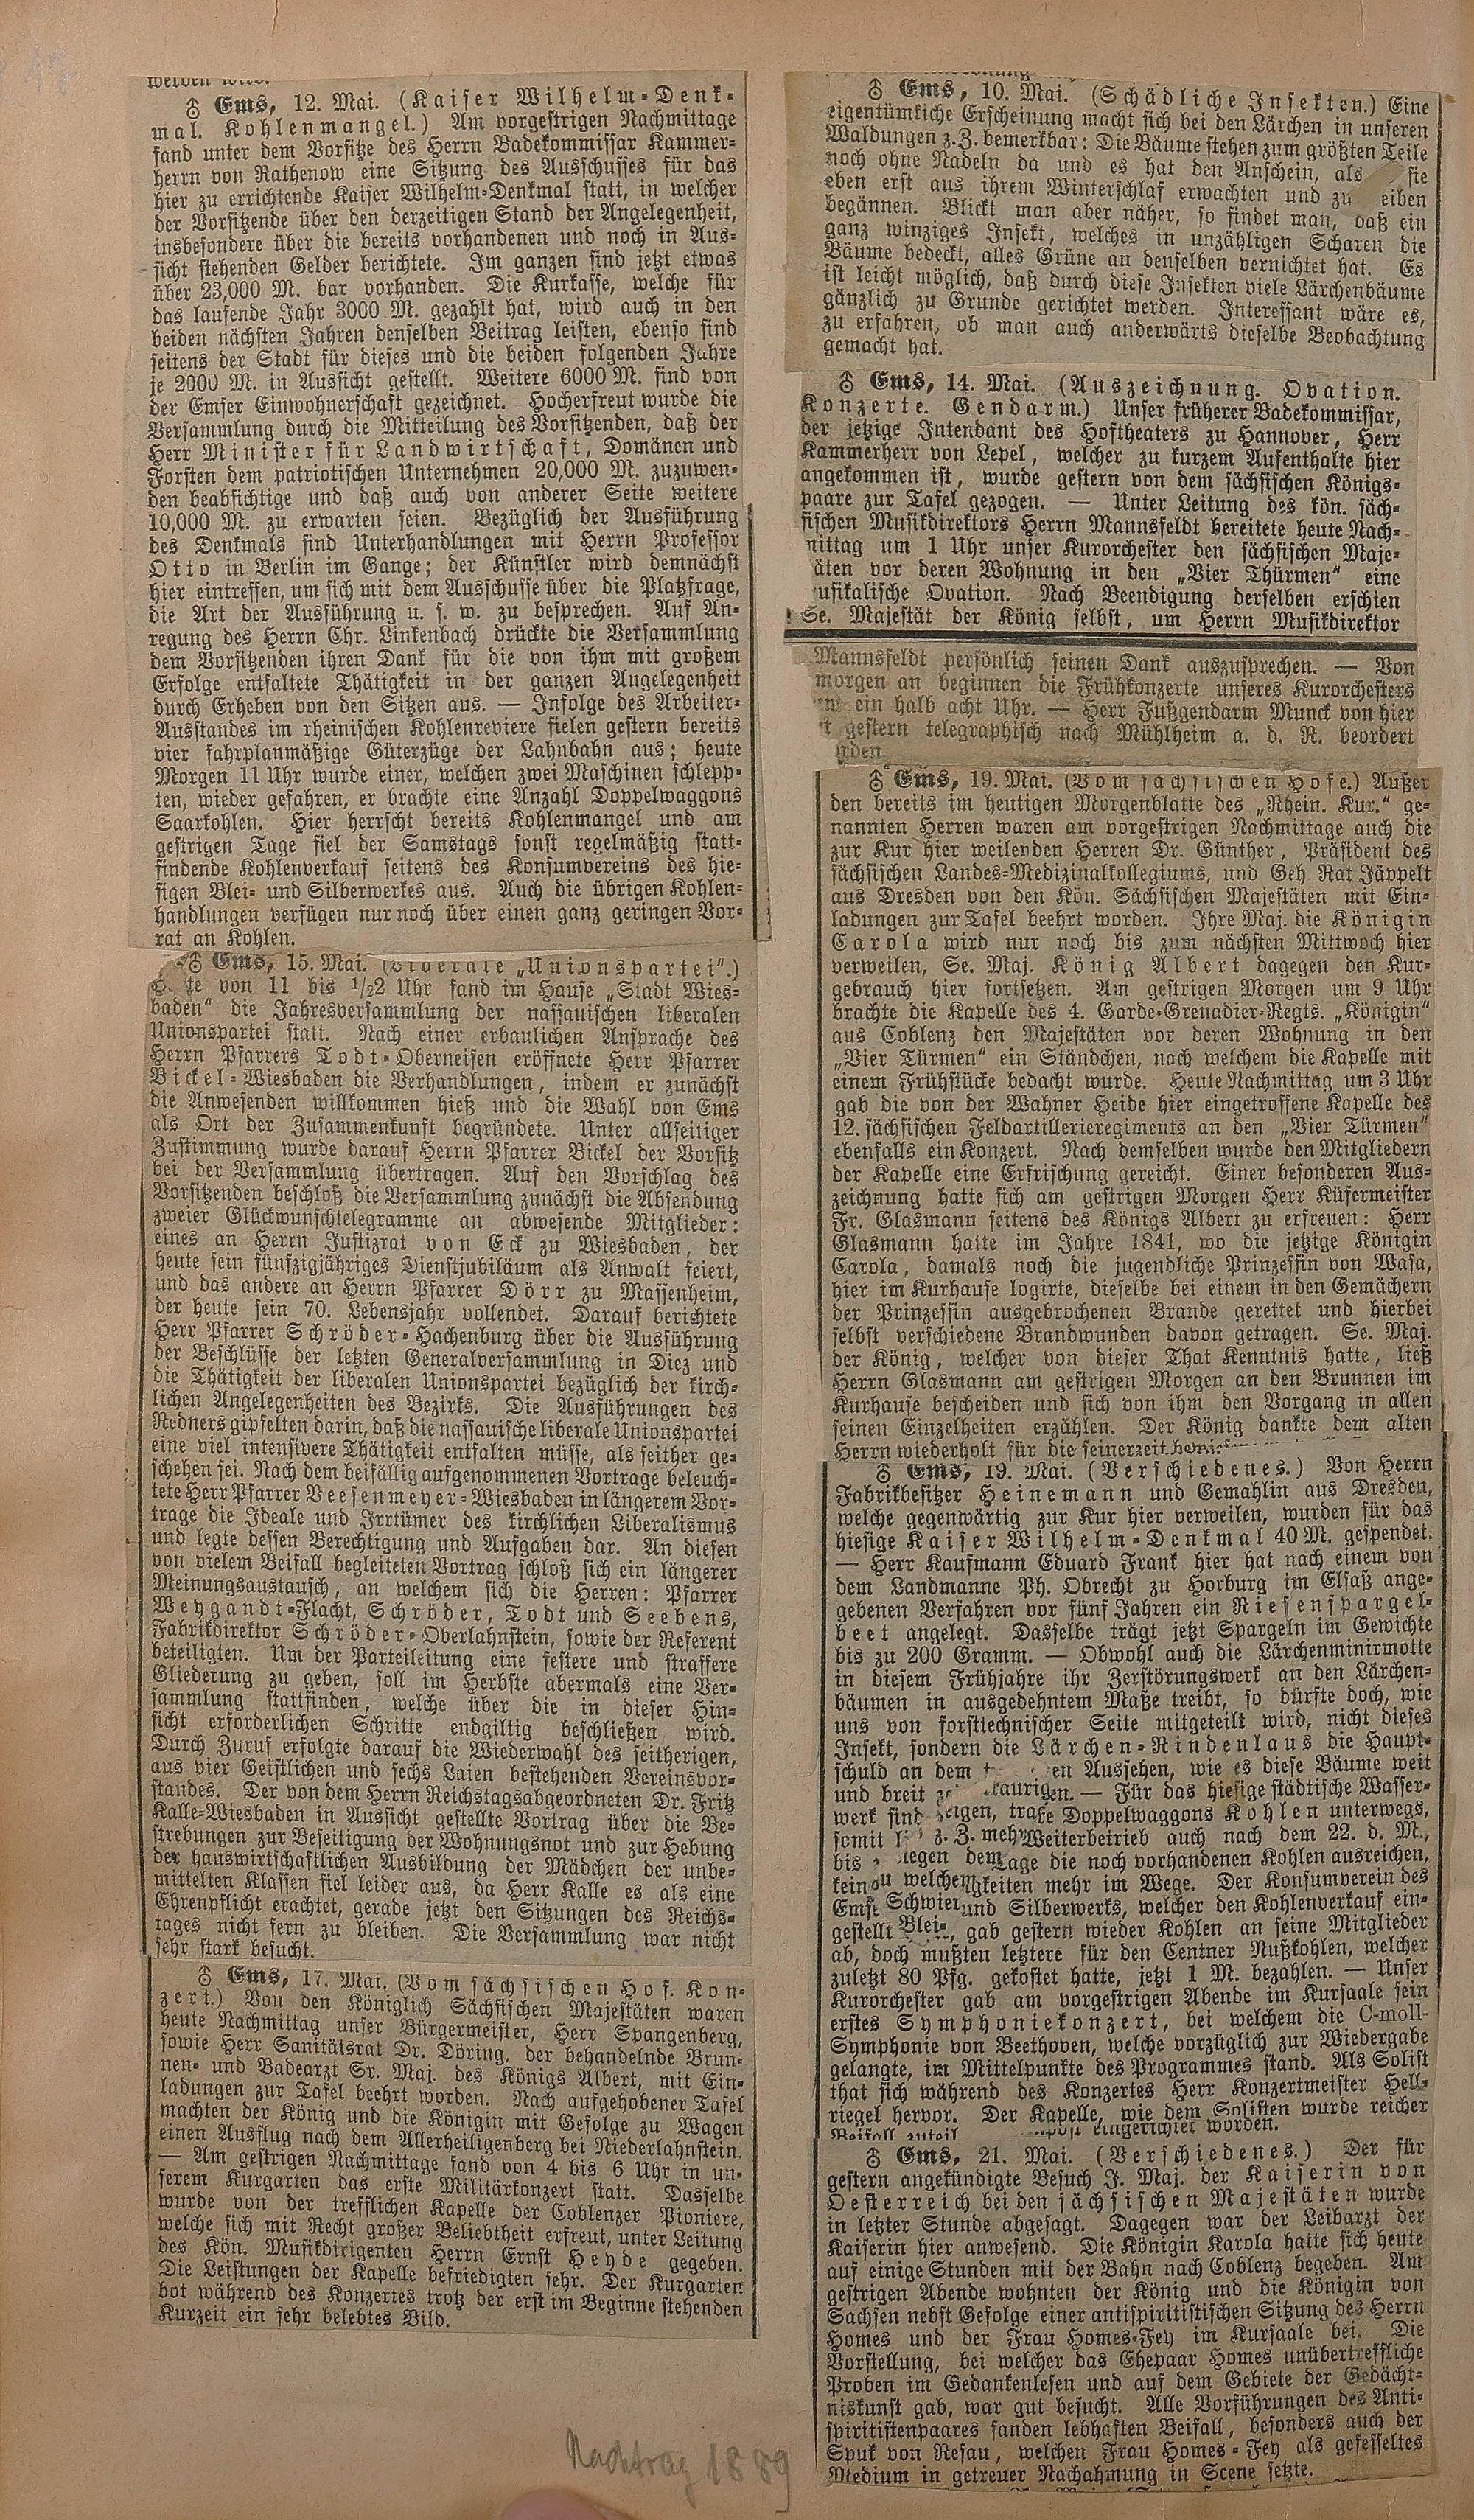 ♁ Ems, 12. Mai. (Kaiser Wilhelm-Denk-
mal. Kohlenmangel.) Am vorgestrigen Nachmittage
fand unter dem Vorsitze des Herrn Badekommissar Kammer-
herrn von Rathenow eine Sitzung des Ausschusses für das
hier zu errichtende Kaiser Wilhelm-Denkmal statt, in welcher
der Vorsitzende über den derzeitigen Stand der Angelegenheit,
insbesondere über die bereits vorhandenen und noch in Aus-
sicht stehenden Gelder berichtete. Im ganzen sind jetzt etwas
über 23,000 M. bar vorhanden. Die Kurkasse, welche für
das laufende Jahr 3000 M. gezahlt hat, wird auch in den
beiden nächsten Jahren denselben Beitrag leisten, ebenso sind
seitens der Stadt für dieses und die beiden folgenden Jahre
je 2000 M. in Aussicht gestellt. Weitere 6000 M. sind von
der Emser Einwohnerschaft gezeichnet. Hocherfreut wurde die
Versammlung durch die Mitteilung des Vorsitzenden, daß der
Herr Minister für Landwirtschaft, Domänen und
Forsten dem patriotischen Unternehmen 20,000 M. zuzuwen-
den beabsichtige und daß auch von anderer Seite weitere
10,000 M. zu erwarten seien. Bezüglich der Ausführung
des Denkmals sind Unterhandlungen mit Herrn Professor
Otto in Berlin im Gange; der Künstler wird demnächst
hier eintreffen, um sich mit dem Ausschusse über die Platzfrage,
die Art der Ausführung u. s. w. zu besprechen. Auf An-
regung des Herrn Chr. Linkenbach drückte die Versammlung
dem Vorsitzenden ihren Dank für die von ihm mit großem
Erfolge entfaltete Thätigkeit in der ganzen Angelegenheit
durch Erheben von den Sitzen aus. — Infolge des Arbeiter-
Ausstandes im rheinischen Kohlenreviere fielen gestern bereits
vier fahrplanmäßige Güterzüge der Lahnbahn aus; heute
Morgen 11 Uhr wurde einer, welchen zwei Maschinen schlepp-
ten, wieder gefahren, er brachte eine Anzahl Doppelwaggons
Saarkohlen. Hier herrscht bereits Kohlenmangel und am
gestrigen Tage fiel der Samstags sonst regelmäßig statt-
findende Kohlenverkauf seitens des Konsumvereins des hie-
sigen Blei- und Silberwerkes aus. Auch die übrigen Kohlen-
handlungen verfügen nur noch über einen ganz geringen Vor-
rat an Kohlen.
♁ Ems, 15. Mai. (Liberale „Unionspartei“.)
te von 11 bis 1/2 2 Uhr fand im Hause „Stadt Wies-
baden“ die Jahresversammlung der nassauischen liberalen
Unionspartei statt. Nach einer erbaulichen Ansprache des
Herrn Pfarrers Todt-Oberneisen eröffnete Herr Pfarrer
Bickel-Wiesbaden die Verhandlungen, indem er zunächst
die Anwesenden willkommen hieß und die Wahl von Ems
als Ort der Zusammenkunft begründete. Unter allseitiger
Zustimmung wurde darauf Herrn Pfarrer Bickel der Vorsitz
bei der Versammlung übertragen. Auf den Vorschlag des
Vorsitzenden beschloß die Versammlung zunächst die Absendung
zweier Glückwunschtelegramme an abwesende Mitglieder:
eines an Herrn Justizrat von Eck zu Wiesbaden, der
heute sein fünfzigjähriges Dienstjubiläum als Anwalt feiert,
und das andere an Herrn Pfarrer Dörr zu Massenheim,
der heute sein 70. Lebensjahr vollendet. Darauf berichtete
Herr Pfarrer Schröder-Hachenburg über die Ausführung
der Beschlüsse der letzten Generalversammlung in Diez und
die Thätigkeit der liberalen Unionspartei bezüglich der kirch-
lichen Angelegenheiten des Bezirks. Die Ausführungen des
Redners gipfelten darin, daß die nassauische liberale Unionspartei
eine viel intensivere Thätigkeit entfalten müsse, als seither ge-
schehen sei. Nach dem beifällig aufgenommenen Vortrage beleuch-
tete Herr Pfarrer Veesenmeyer-Wiesbaden in längerem Vor-
trage die Ideale und Irrtümer des kirchlichen Liberalismus
und legte dessen Berechtigung und Aufgaben dar. An diesen
von vielem Beifall begleiteten Vortrag schloß sich ein längerer
Meinungsaustausch, an welchem sich die Herren: Pfarrer
Weygandt-Flacht, Schröder, Todt und Seebens,
Fabrikdirektor Schröder-Oberlahnstein, sowie der Referent
beteiligten. Um der Parteileitung eine festere und straffere
Gliederung zu geben, soll im Herbste abermals eine Ver-
sammlung stattfinden, welche über die in dieser Hin-
sicht erforderlichen Schritte endgiltig beschließen wird.
Durch Zuruf erfolgte darauf die Wiederwahl des seitherigen,
aus vier Geistlichen und sechs Laien bestehenden Vereinsvor-
standes. Der von dem Herrn Reichstagsabgeordneten Dr. Fritz
Kalle-Wiesbaden in Aussicht gestellte Vortrag über die Be-
strebungen zur Beseitigung der Wohnungsnot und zur Hebung
der hauswirtschaftlichen Ausbildung der Mädchen der unbe-
mittelten Klassen fiel leider aus, da Herr Kalle es als eine
Ehrenpflicht erachtet, gerade jetzt den Sitzungen des Reichs-
tages nicht fern zu bleiben. Die Versammlung war nicht
sehr stark besucht.
♁ Ems, 17. Mai. (Vom sächsischen Hof. Kon-
zert.) Von den Königlich Sächsischen Majestäten waren
heute Nachmittag unser Bürgermeister, Herr Spangenberg,
sowie Herr Sanitätsrat Dr. Döring, der behandelnde Brun-
nen- und Badearzt Sr. Maj. des Königs Albert, mit Ein-
ladungen zur Tafel beehrt worden. Nach aufgehobener Tafel
machten der König und die Königin mit Gefolge zu Wagen
einen Ausflug nach dem Allerheiligenberg bei Niederlahnstein.
— Am gestrigen Nachmittage fand von 4 bis 6 Uhr in un-
serem Kurgarten das erste Militärkonzert statt. Dasselbe
wurde von der trefflichen Kapelle der Coblenzer Pioniere,
welche sich mit Recht großer Beliebtheit erfreut, unter Leitung
des Kön. Musikdirigenten Herrn Ernst Heyde gegeben.
Die Leistungen der Kapelle befriedigten sehr. Der Kurgarten
bot während des Konzertes trotz der erst im Beginne stehenden
Kurzeit ein sehr belebtes Bild.
♁ Ems, 10. Mai. (Schädliche Insekten.) Eine
eigentümliche Erscheinung macht sich bei den Lärchen in unseren
Waldungen z. Z. bemerkbar: Die Bäume stehen zum größten Teile
noch ohne Nadeln da und es hat den Anschein, als sie
eben erst aus ihrem Winterschlaf erwachten und zu eiben
begännen. Blickt man aber näher, so findet man, daß ein
ganz winziges Insekt, welches in unzähligen Scharen die
Bäume bedeckt, alles Grüne an denselben vernichtet hat. Es
ist leicht möglich, daß durch diese Insekten viele Lärchenbäume
gänzlich zu Grunde gerichtet werden. Interessant wäre es,
zu erfahren, ob man auch anderwärts dieselbe Beobachtung
gemacht hat.
♁ Ems, 14. Mai. (Auszeichnung. Ovation.
Konzerte. Gendarm.) Unser früherer Badekommissar,
der jetzige Intendant des Hoftheaters zu Hannover, Herr
Kammerherr von Lepel, welcher zu kurzem Aufenthalte hier
angekommen ist, wurde gestern von dem sächsischen Königs-
paare zur Tafel gezogen. — Unter Leitung des kön. säch-
sischen Musikdirektors Herrn Mannsfeldt bereitete heute Nach-
nittag um 1 Uhr unser Kurorchester den sächsischen Maje-
äten vor deren Wohnung in den „Vier Thürmen“ eine
usikalische Ovation. Nach Beendigung derselben erschien
Se. Majestät der König selbst, um Herrn Musikdirektor
Mannsfeldt persönlich seinen Dank auszusprechen. — Von
morgen an beginnen die Frühkonzerte unseres Kurorchesters
ein halb acht Uhr. — Herr Fußgendarm Munck von hier
t gestern telegraphisch nach Mühlheim a. d. R. beordert
rden.
♁ Ems, 19. Mai. (Vom sächsischen Hofe.) Außer
den bereits im heutigen Morgenblatte des „Rhein. Kur.“ ge-
nannten Herren waren am vorgestrigen Nachmittage auch die
zur Kur hier weilenden Herren Dr. Günther, Präsident des
sächsischen Landes-Medizinalkollegiums, und Geh Rat Jäppelt
aus Dresden von den Kön. Sächsischen Majestäten mit Ein-
ladungen zur Tafel beehrt worden. Ihre Maj. die Königin
Carola wird nur noch bis zum nächsten Mittwoch hier
verweilen, Se. Maj. König Albert dagegen den Kur-
gebrauch hier fortsetzen. Am gestrigen Morgen um 9 Uhr
brachte die Kapelle des 4. Garde-Grenadier-Regts. „Königin“
aus Coblenz den Majestäten vor deren Wohnung in den
„Vier Türmen“ ein Ständchen, nach welchem die Kapelle mit
einem Frühstücke bedacht wurde. Heute Nachmittag um 3 Uhr
gab die von der Wahner Heide hier eingetroffene Kapelle des
12. sächsischen Feldartillerieregiments an den „Vier Türmen“
ebenfalls ein Konzert. Nach demselben wurde den Mitgliedern
der Kapelle eine Erfrischung gereicht. Einer besonderen Aus-
zeichnung hatte sich am gestrigen Morgen Herr Küfermeister
Fr. Glasmann seitens des Königs Albert zu erfreuen: Herr
Glasmann hatte im Jahre 1841, wo die jetzige Königin
Carola, damals noch die jugendliche Prinzessin von Wasa,
hier im Kurhause logirte, dieselbe bei einem in den Gemächern
der Prinzessin ausgebrochenen Brande gerettet und hierbei
selbst verschiedene Brandwunden davon getragen. Se. Maj.
der König, welcher von dieser That Kenntnis hatte, ließ
Herrn Glasmann am gestrigen Morgen an den Brunnen im
Kurhause bescheiden und sich von ihm den Vorgang in allen
seinen Einzelheiten erzählen. Der König dankte dem alten
Herrn wiederholt für die seinerzeit
♁ Ems, 19. Mai. (Verschiedenes.) Von Herrn
Fabrikbesitzer Heinemann und Gemahlin aus Dresden,
welche gegenwärtig zur Kur hier verweilen, wurden für das
hiesige Kaiser Wilhelm-Denkmal 40 M. gespendet.
— Herr Kaufmann Eduard Frank hier hat nach einem von
dem Landmanne Ph. Obrecht zu Horburg im Elsaß ange-
gebenen Verfahren vor fünf Jahren ein Riesenspargel-
beet angelegt. Dasselbe trägt jetzt Spargeln im Gewichte
bis zu 200 Gramm. — Obwohl auch die Lärchenminirmotte
in diesem Frühjahre ihr Zerstörungswerk an den Lärchen-
bäumen in ausgedehntem Maße treibt, so dürfte doch, wie
uns von forsttechnischer Seite mitgeteilt wird, nicht dieses
Insekt, sondern die Lärchen-Rindenlaus die Haupt-
schuld an dem en Aussehen, wie es diese Bäume weit
und breit raurigen. — Für das hiesige städtische Wasser-
werk sind eigen, trafe Doppelwaggons Kohlen unterwegs,
somit z. Z. meh Weiterbetrieb auch nach dem 22. d. M.,
bis egen dem age die noch vorhandenen Kohlen ausreichen,
kein u welchen gkeiten mehr im Wege. Der Konsumverein des
Emse Schwier und Silberwerks, welcher den Kohlenverkauf ein-
gestellt Blei- gab gestern wieder Kohlen an seine Mitglieder
ab, doch mußten letztere für den Centner Nußkohlen, welcher
zuletzt 80 Pfg. gekostet hatte, jetzt 1 M. bezahlen. — Unser
Kurorchester gab am vorgestrigen Abende im Kursaale sein
erstes Symphoniekonzert, bei welchem die C-moll-
Symphonie von Beethoven, welche vorzüglich zur Wiedergabe
gelangte, im Mittelpunkte des Programmes stand. Als Solist
that sich während des Konzertes Herr Konzertmeister Hell-
riegel hervor. Der Kapelle, wie dem Solisten wurde reicher
Beifall zuteil eingerichtet worden.
♁ Ems, 21. Mai. (Verschiedenes.) Der für
gestern angekündigte Besuch J. Maj. der Kaiserin von
Oesterreich bei den sächsischen Majestäten wurde
in letzter Stunde abgesagt. Dagegen war der Leibarzt der
Kaiserin hier anwesend. Die Königin Karola hatte sich heute
auf einige Stunden mit der Bahn nach Coblenz begeben. Am
gestrigen Abende wohnten der König und die Königin von
Sachsen nebst Gefolge einer antispiritistischen Sitzung des Herrn
Homes und der Frau Homes-Fey im Kursaale bei. Die
Vorstellung, bei welcher das Ehepaar Homes unübertreffliche
Proben im Gedankenlesen und auf dem Gebiete der Gedächt-
niskunst gab, war gut besucht. Alle Vorführungen des Anti-
spiritistenpaares fanden lebhaften Beifall, besonders auch der
Spuk von Resau, welchen Frau Homes-Fey als gefesseltes
Medium in getreuer Nachahmung in Scene setzte.
Nachtrag 1889